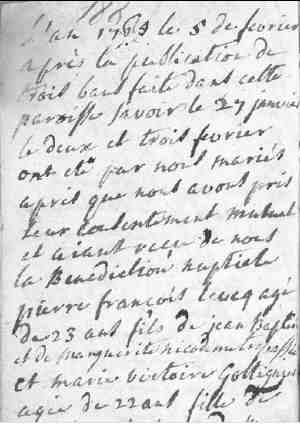 L'an 1763 le 5 de fevrier
après la publication de
trois bans faite dans cette
paroisse savoir le 27 janvier
le deux et trois fevrier
ont eté par nous mariés
après que nous avons pris
leur consentement mutuel
et aiant reçu de nous
la Benediction nuptiale
pierre françois agé
de 23 ans fils de jean Baptiste
et de marguerite
et marie victoire
agée de 22 ans fille de